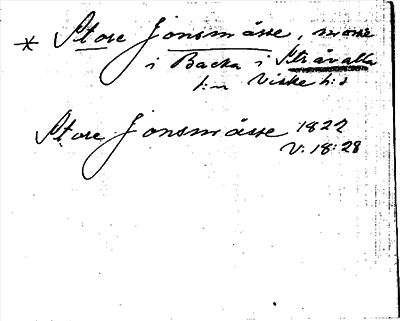 * Store Jonsmåsse, mosse
i Backa i Stråvalla
s:n Viske h:d
Store Jonsmåsse 1827
V: 18: 28